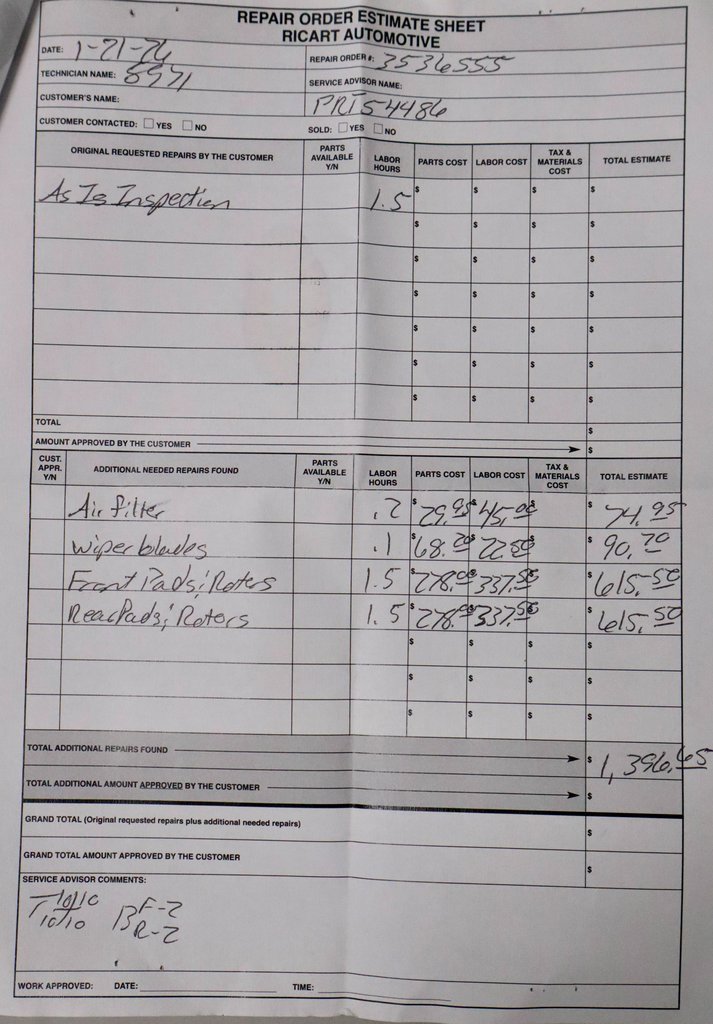 REPAIR ORDER ESTIMATE SHEET
RICART AUTOMOTIVE
DATE: 1-21-26 REPAIR ORDER #: 3536555
TECHNICIAN NAME: 8971 SERVICE ADVISOR NAME:
CUSTOMER'S NAME: PRT54486
CUSTOMER CONTACTED: YES NO SOLD: YES NO
ORIGINAL REQUESTED REPAIRS BY THE CUSTOMER PARTS AVAILABLE Y/N LABOR HOURS PARTS COST LABOR COST TAX & MATERIALS COST TOTAL ESTIMATE
As Is Inspection 1.5 $ $ $ $
$ $ $ $
$ $ $ $
$ $ $ $
$ $ $ $
$ $ $ $
$ $ $ $
TOTAL $
AMOUNT APPROVED BY THE CUSTOMER $
CUST. APPR. Y/N ADDITIONAL NEEDED REPAIRS FOUND PARTS AVAILABLE Y/N LABOR HOURS PARTS COST LABOR COST TAX & MATERIALS COST TOTAL ESTIMATE
Air filter .2 $29.95 $45.00 $ $74.95
Wiper blades .1 $68.20 $22.50 $ $90.70
Front Pads; Rotors 1.5 $278.00 $337.50 $ $615.50
Rear Pads; Rotors 1.5 $278.00 $337.50 $ $615.50
$ $ $ $
$ $ $ $
$ $ $ $
TOTAL ADDITIONAL REPAIRS FOUND $1,396.65
TOTAL ADDITIONAL AMOUNT APPROVED BY THE CUSTOMER $
GRAND TOTAL (Original requested repairs plus additional needed repairs) $
GRAND TOTAL AMOUNT APPROVED BY THE CUSTOMER $
SERVICE ADVISOR COMMENTS:
T 10/10 B F-2
10/10 R-2
WORK APPROVED: DATE: TIME: